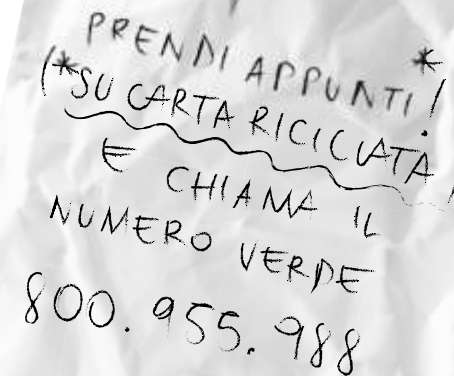 PRENDI APPUNTI*!
(*SU CARTA RICICLATA)
E CHIAMA IL
NUMERO VERDE
800.955.988